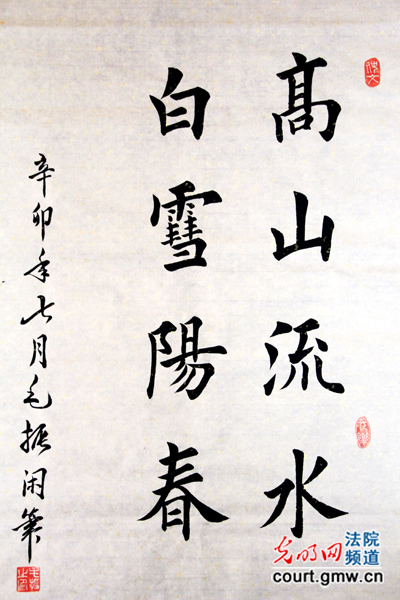 髙山流水
白䨮陽春
辛卯年七月毛振闲筆
光明网
法院
频道
court.gmw.cn